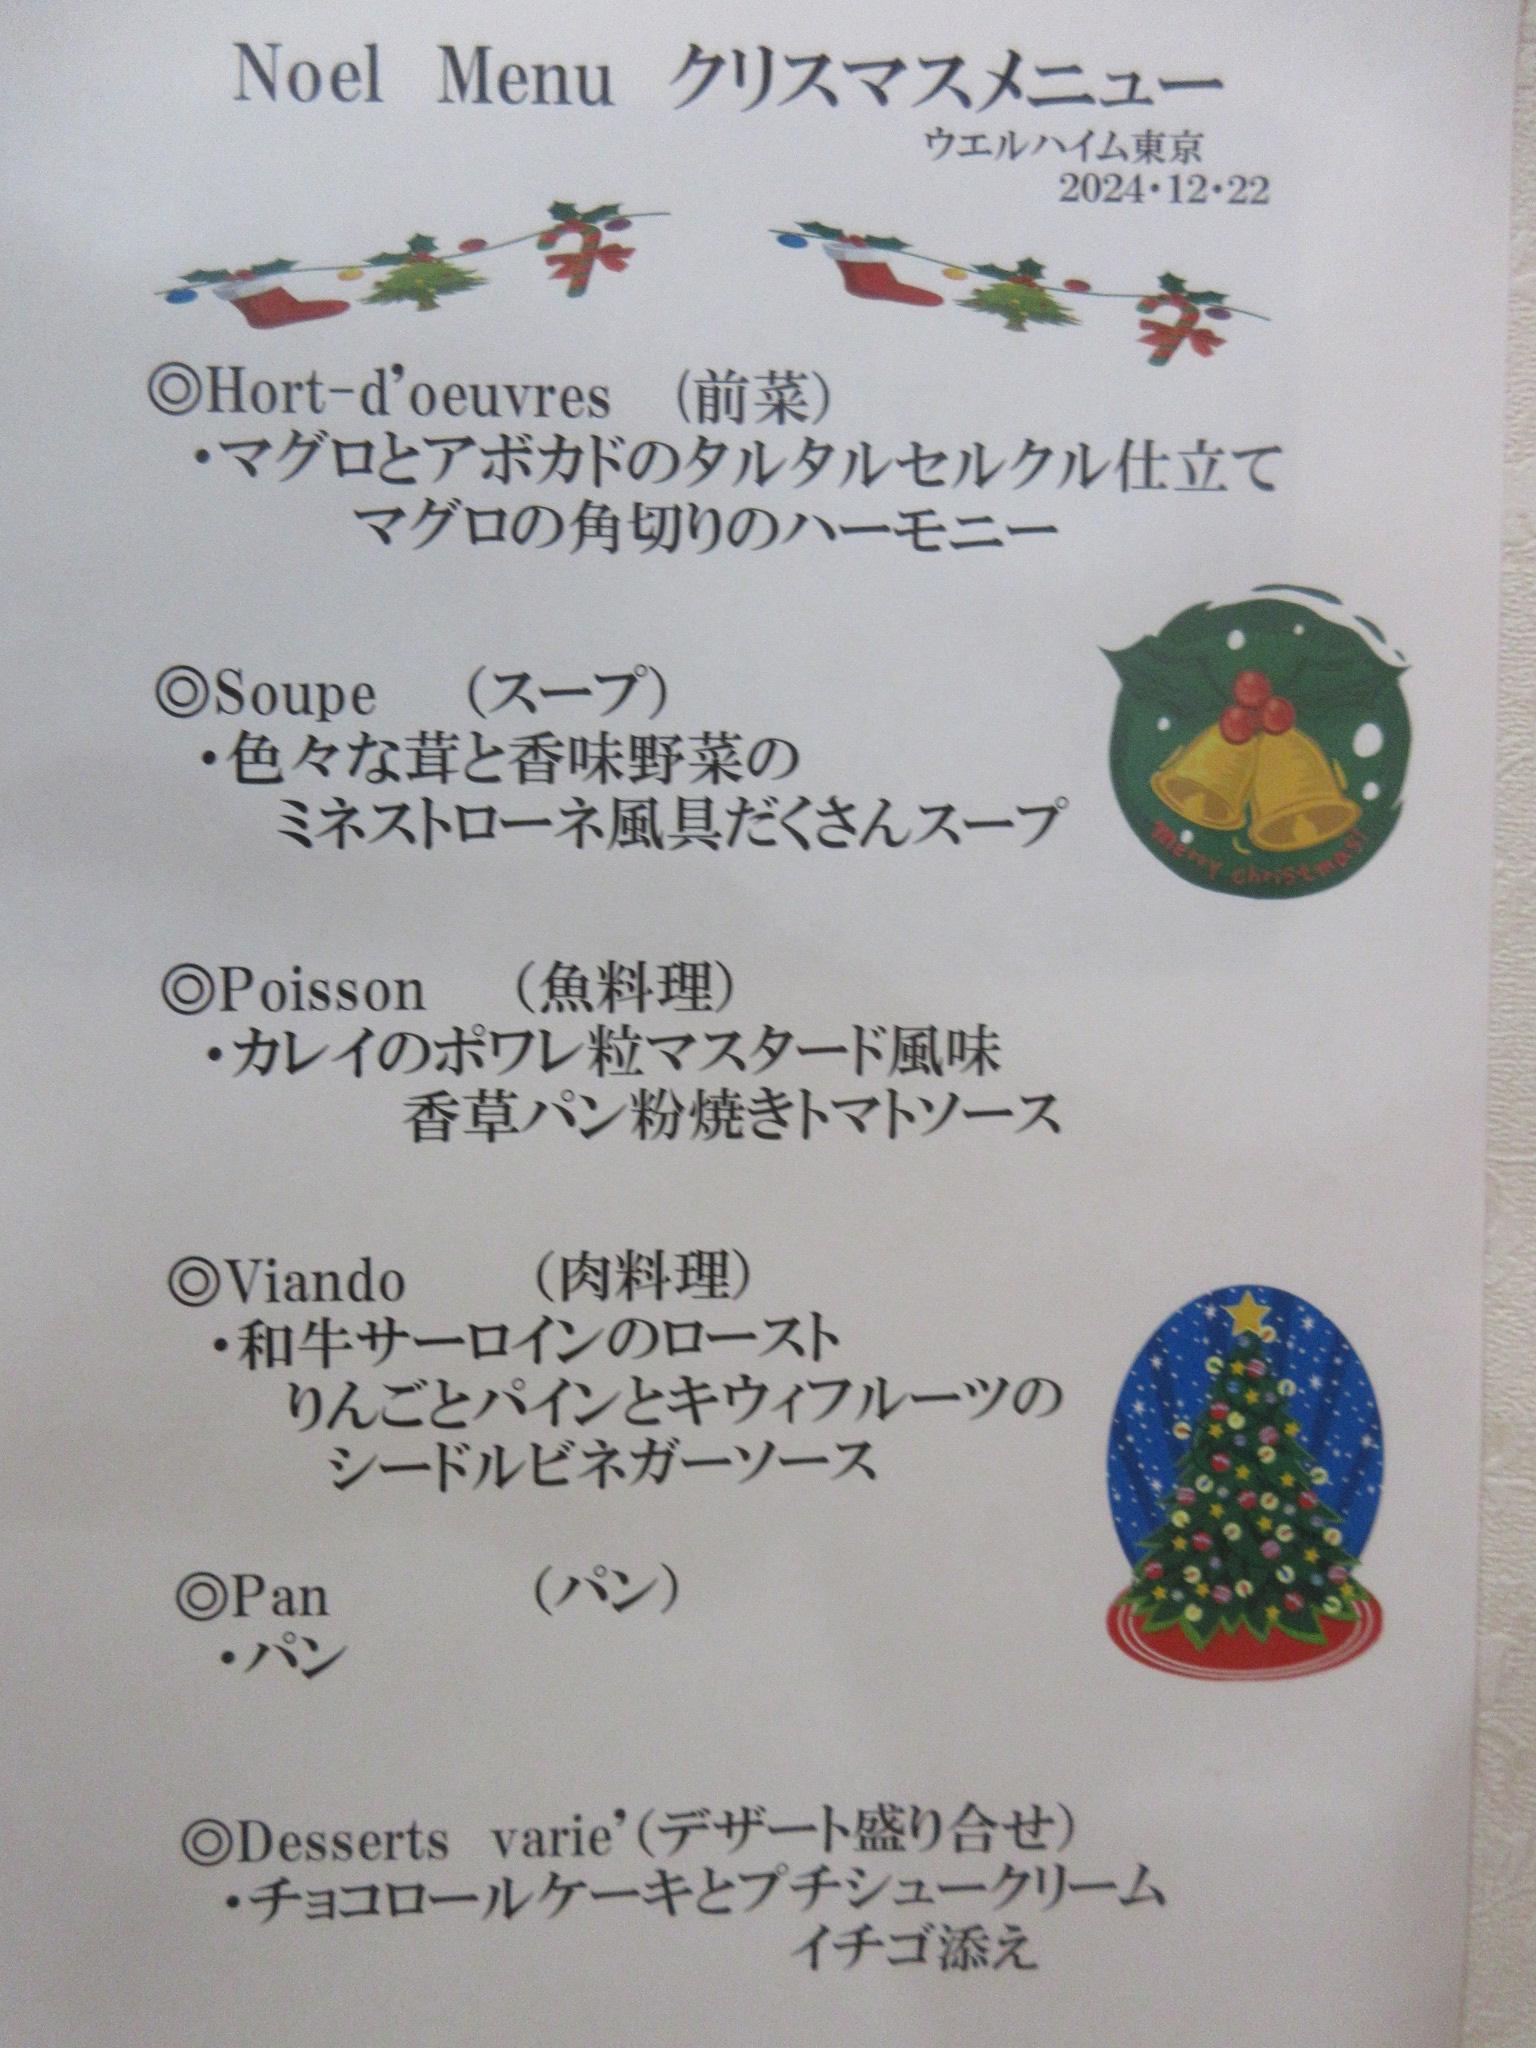 Noel Menu クリスマスメニュー
ウエルハイム東京
2024・12・22
◎Hort-d'oeuvres (前菜)
・マグロとアボカドのタルタルセルクル仕立て
マグロの角切りのハーモニー
◎Soupe (スープ)
・色々な茸と香味野菜の
ミネストローネ風具だくさんスープ
Merry Christmas!
◎Poisson (魚料理)
・カレイのポワレ粒マスタード風味
香草パン粉焼きトマトソース
◎Viando (肉料理)
・和牛サーロインのロースト
りんごとパインとキウィフルーツの
シードルビネガーソース
◎Pan (パン)
・パン
◎Desserts varie'(デザート盛り合せ)
・チョコロールケーキとプチシュークリーム
イチゴ添え